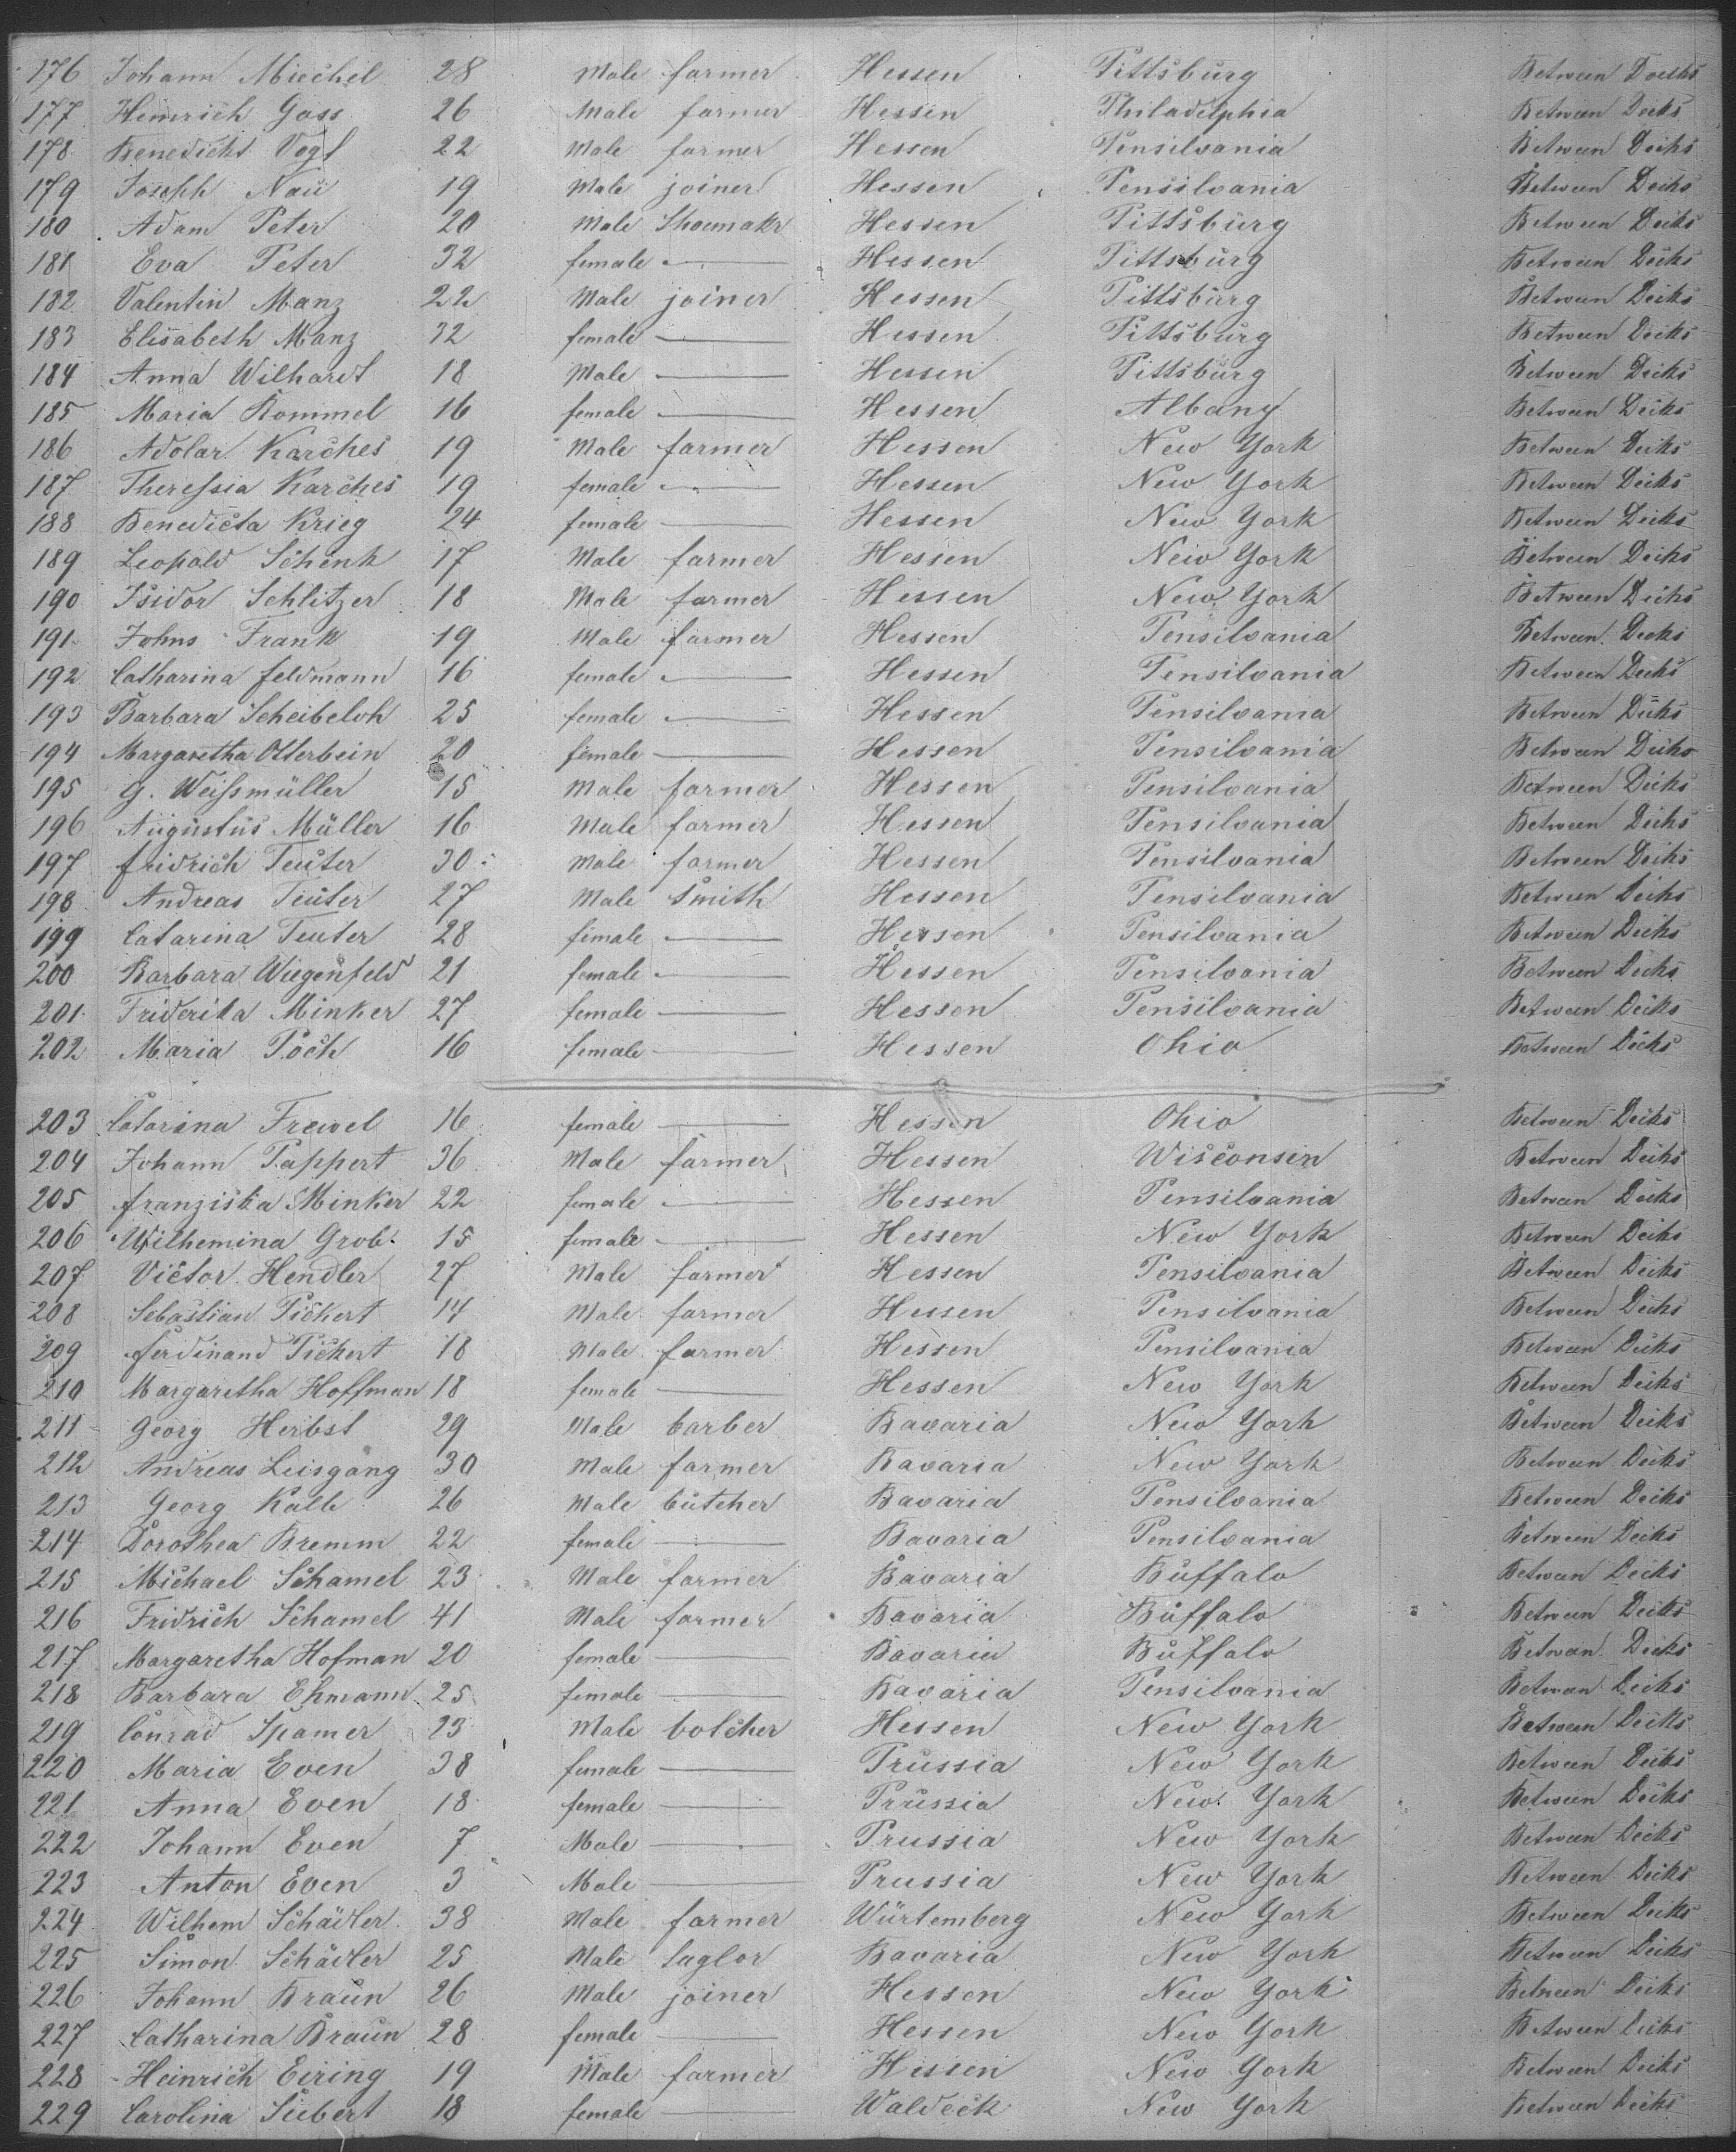 176 Johann Miechel 28 Male farmer Hessen Pittsburg Between Decks
177 Heinrich Gass 26 Male farmer Hessen Philadelphia Between Decks
178 Benedickt Vogt 22 Male farmer Hessen Pensilvania Between Decks
179 Joseph Naü 19 Male joiner Hessen Pensilvania Between Decks
180 Adam Peter 20 Male Shoemakr Hessen Pittsburg Between Decks
181 Eva Peter 32 female — Hessen Pittsburg Between Decks
182 Valentin Manz 22 Male joiner Hessen Pittsburg Between Decks
183 Elisabeth Manz 32 female — Hessen Pittsburg Between Decks
184 Anna Wilhardt 18 Male — Hessen Pittsburg Between Decks
185 Maria Rommel 16 female — Hessen Albany Between Decks
186 Adolar Karches 19 Male farmer Hessen New York Between Decks
187 Theressia Karches 19 female — Hessen New York Between Decks
188 Benedicta Krieg 24 female — Hessen New York Between Decks
189 Leopold Schenk 17 Male farmer Hessen New York Between Decks
190 Isidor Schlitzer 18 Male farmer Hessen New York Between Decks
191 Johns Frank 19 Male farmer Hessen Pensilvania Between Decks
192 Catharina feldmann 16 female — Hessen Pensilvania Between Decks
193 Barbara Scheibeloh 25 female — Hessen Pensilvania Between Decks
194 Margaretha Otterbein 20 female — Hessen Pensilvania Between Decks
195 G. Weißmüller 15 Male farmer Hessen Pensilvania Between Decks
196 Augustus Müller 16 Male farmer Hessen Pensilvania Between Decks
197 fridrich Teuter 30 Male farmer Hessen Pensilvania Between Decks
198 Andreas Teuter 27 Male Smith Hessen Pensilvania Between Decks
199 Catarina Teuter 28 female — Hessen Pensilvania Between Decks
200 Barbara Wiegenfeld 21 female — Hessen Pensilvania Between Decks
201 Friderika Minker 27 female — Hessen Pensilvania Between Decks
202 Maria Poch 16 female — Hessen Ohio Between Decks
203 Catarina Frewel 16 female — Hessen Ohio Between Decks
204 Johann Pappert 36 Male farmer Hessen Wisconsin Between Decks
205 franziska Minker 22 female — Hessen Pensilvania Between Decks
206 Wilhemina Grob 15 female — Hessen New York Between Decks
207 Victor Hendler 27 Male farmer Hessen Pensilvania Between Decks
208 Sebastian Pickert 14 Male farmer Hessen Pensilvania Between Decks
209 ferdinand Pickert 18 Male farmer Hessen Pensilvania Between Decks
210 Margaretha Hoffman 18 female — Hessen New York Between Decks
211 Georg Herbst 29 Male barber Bavaria New York Between Decks
212 Andreas Leisgang 30 Male farmer Bavaria New York Between Decks
213 Georg Kalb 26 Male butcher Bavaria Pensilvania Between Decks
214 Dorothea Bremm 22 female — Bavaria Pensilvania Between Decks
215 Michael Schamel 23 Male farmer Bavaria Buffalo Between Decks
216 Fridrich Schamel 41 Male farmer Bavaria Buffalo Between Decks
217 Margaretha Hofman 20 female — Bavaria Buffalo Between Decks
218 Barbara Ehmann 25 female — Bavaria Pensilvania Between Decks
219 Conrad Spamer 23 Male bolcher Hessen New York Between Decks
220 Maria Even 38 female — Prussia New York Between Decks
221 Anna Even 18 female — Prussia New York Between Decks
222 Johann Even 7 Male — Prussia New York Between Decks
223 Anton Even 3 Male — Prussia New York Between Decks
224 Wilhem Schädler 38 Male farmer Würtemberg New York Between Decks
225 Simon Schädler 25 Male taglor Bavaria New York Between Decks
226 Johann Braun 26 Male joiner Hessen New York Between Decks
227 Catharina Braun 28 female — Hessen New York Between Decks
228 Heinrich Eiring 19 Male farmer Hessen New York Between Decks
229 Carolina Siebert 18 female — Waldeck New York Between Decks